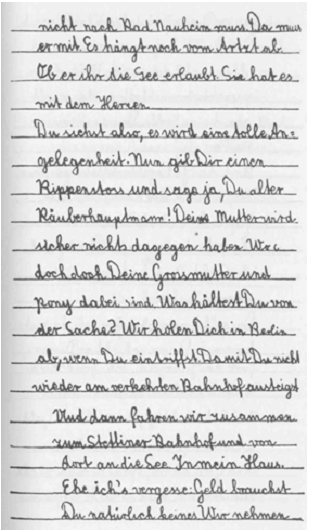 nicht nach Bad Nauheim muss. Da muss
er mit. Es hängt noch vom Artzt ab.
Ob er ihr die See erlaubt. Sie hat es
mit dem Herzen.
Du siehst also, es wird eine tolle An=
gelegenheit. Nun gib Dir einen
Rippenstoss und sage ja, Du alter
Räuberhauptmann! Deine Mutter wird
sicher nichts dagegen haben. Wo
doch doch Deine Grossmutter und
Pony dabei sind. Was hältst Du von
der Sache? Wir holen Dich in Berlin
ab, wenn Du eintriffst. Damit Du nicht
wieder am verkehrten Bahnhof austeigst.
Und dann fahren wir zusammen
zum Stettiner Bahnhof und von
dort an die See. In mein Haus.
Ehe ich's vergesse: Geld brauchst
Du natürlich keines. Wir nehmen